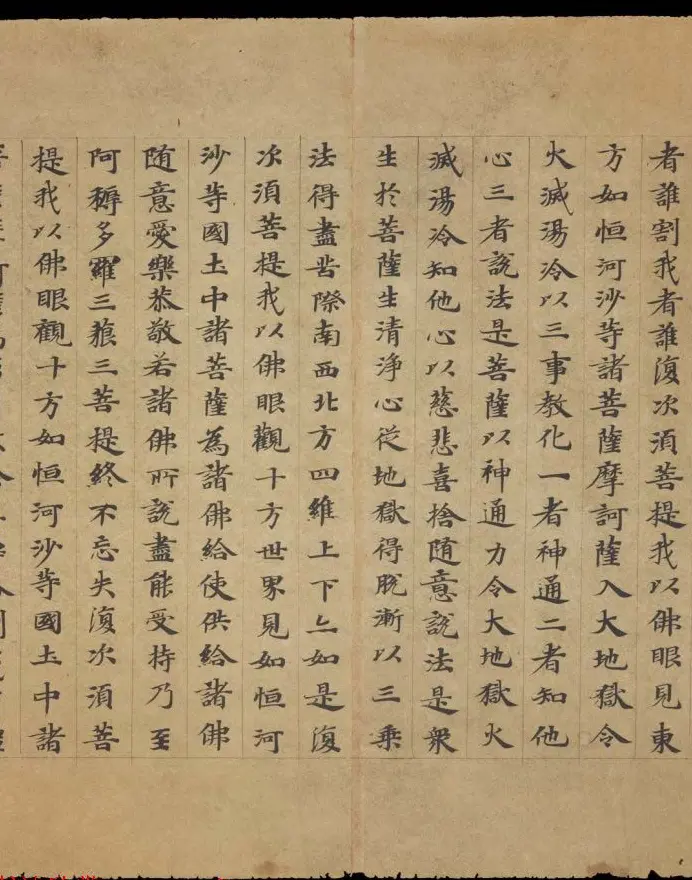 者誰割我者誰復次須菩提我以佛眼見東
方如恒河沙等諸菩薩摩訶薩入大地獄令
火滅湯冷以三事教化一者神通二者知他
心三者說法是菩薩以神通力令大地獄火
滅湯冷知他心以慈悲喜捨随意說法是衆
生於菩薩生清淨心從地獄得脫漸以三乗
法得盡苦際南西北方四維上下亦如是復
次須菩提我以佛眼觀十方世界見如恒河
沙等國土中諸菩薩為諸佛給使供給諸佛
随意愛樂恭敬若諸佛所說盡能受持乃至
阿耨多羅三藐三菩提終不忘失復次須菩
提我以佛眼觀十方如恒河沙等國土中諸